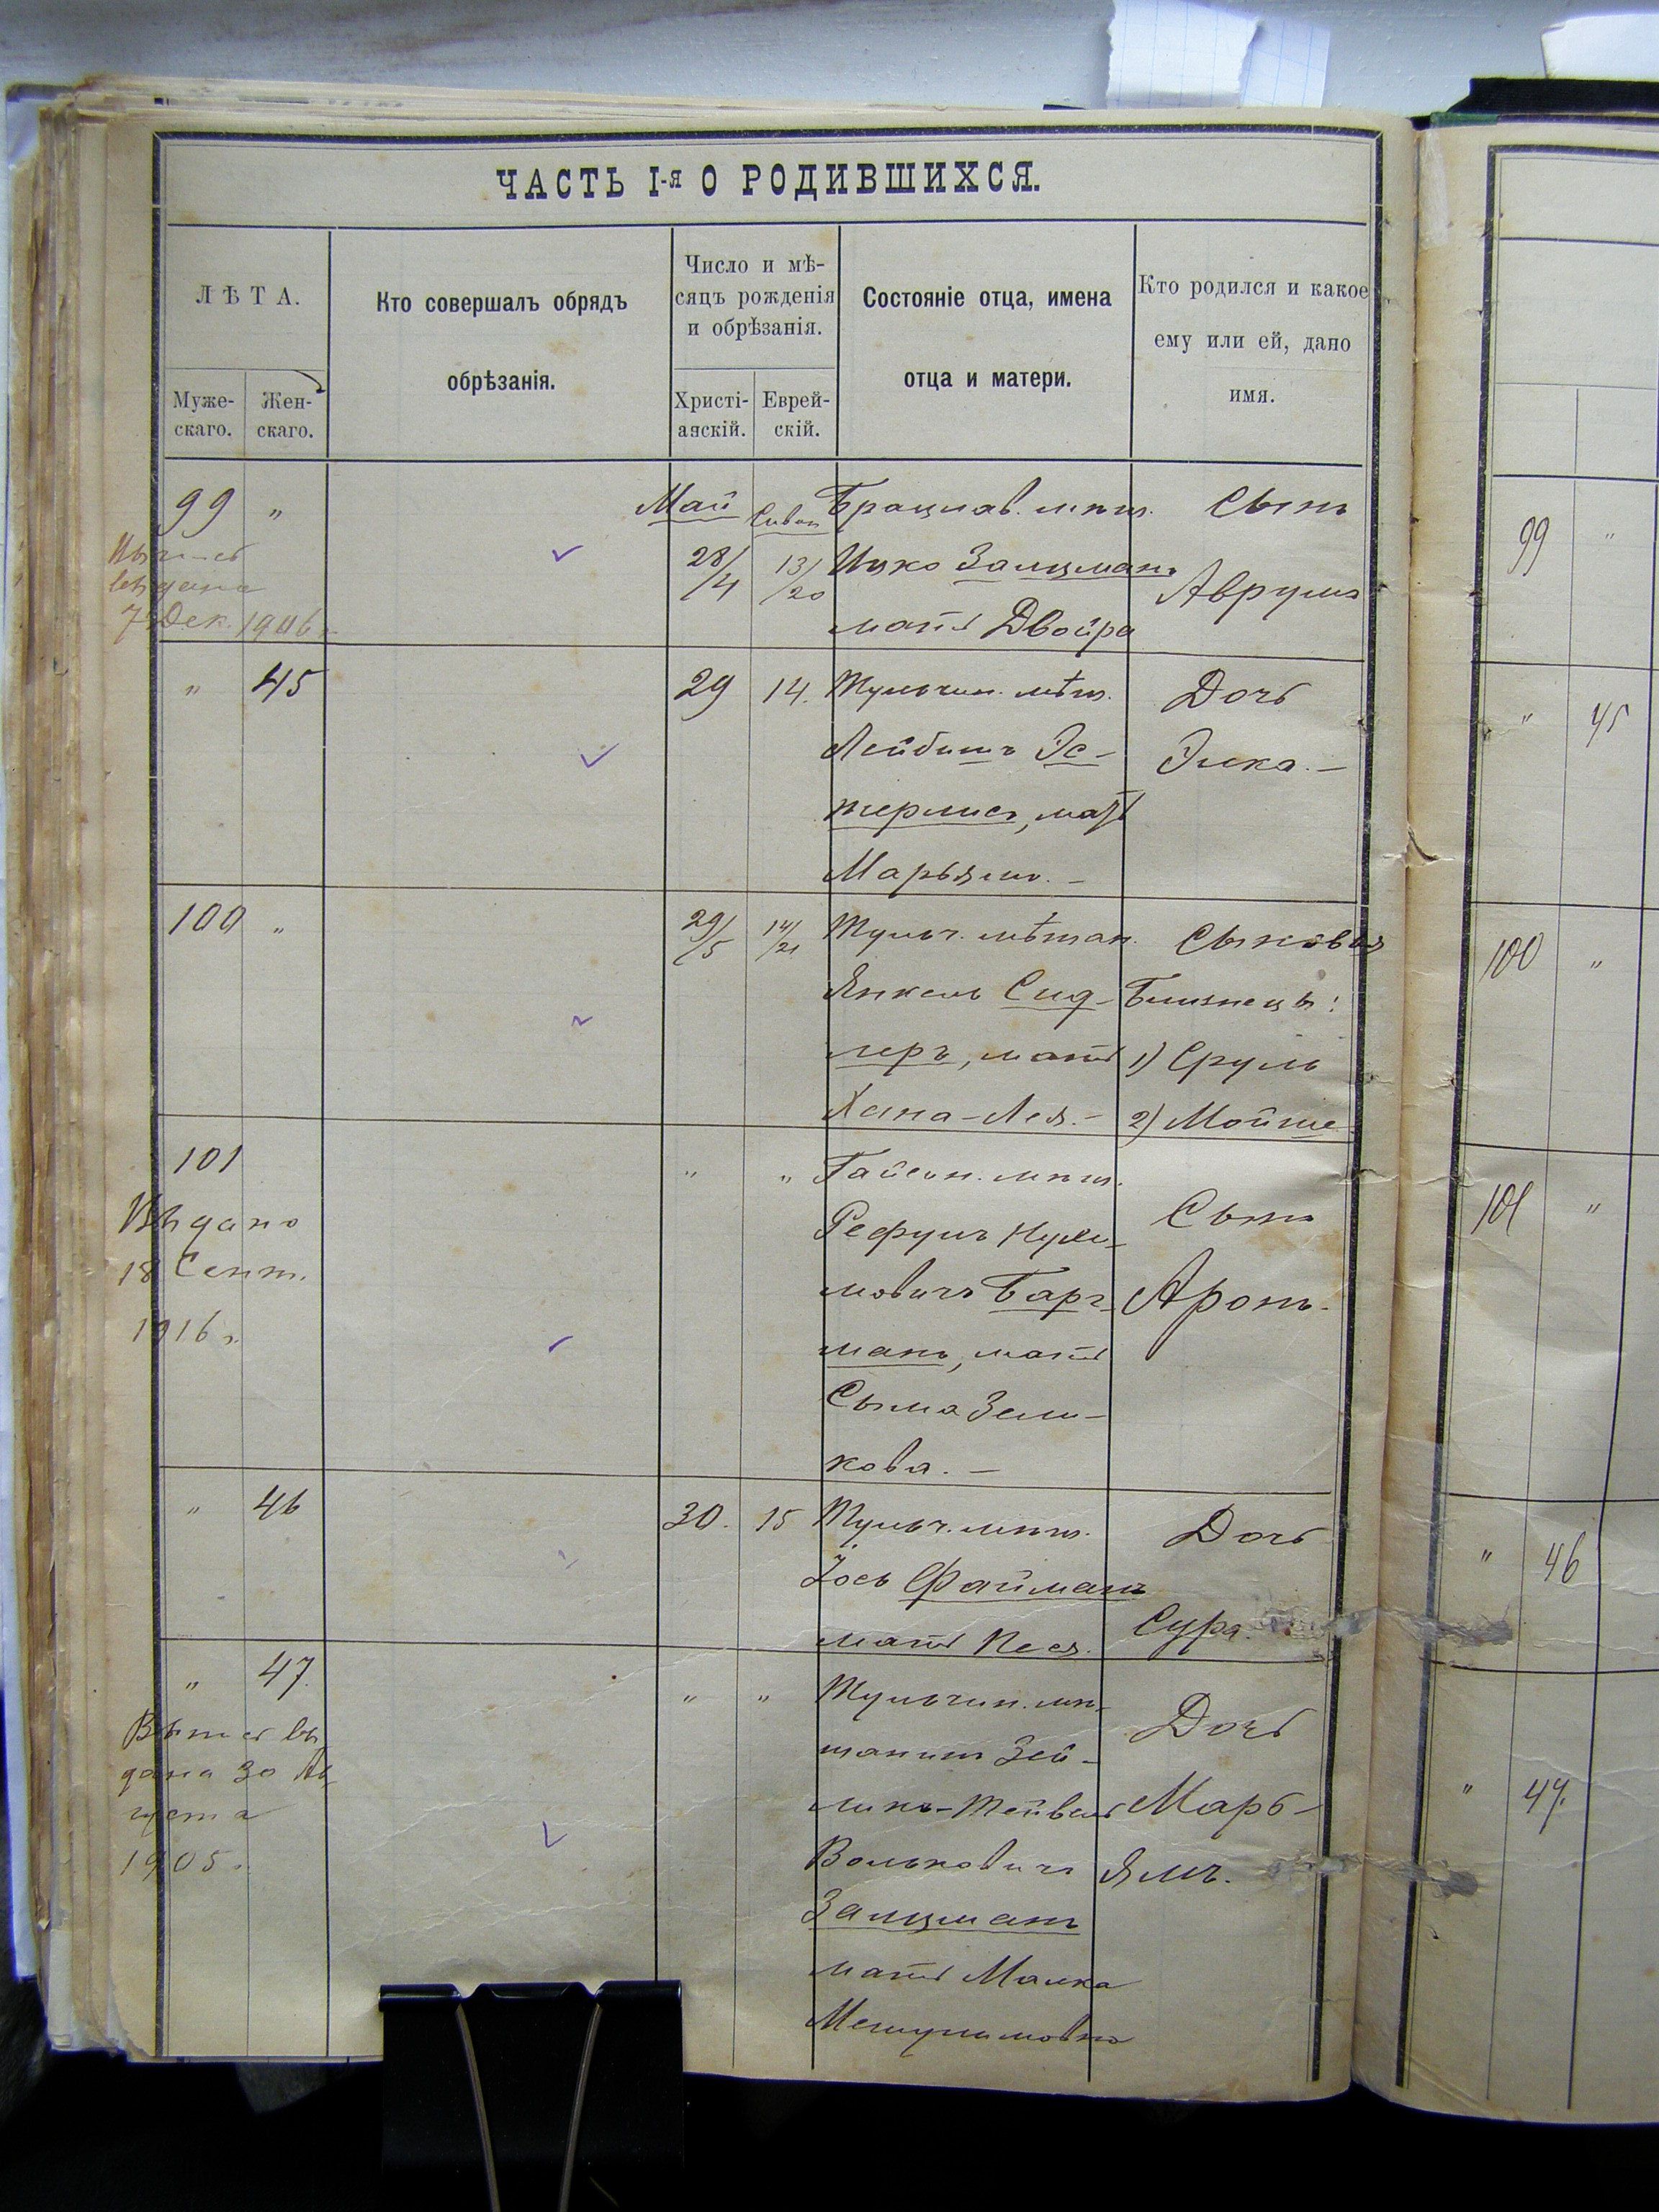 ЧАСТЬ I-я О РОДИВШИХСЯ.
ЛѢТА.
Муже-
скаго.
Жен-
скаго.
Кто совершалъ обрядъ
обрѣзанія.
Число и мѣ-
сяцъ рожденія
и обрѣзанія.
Христі-
анскій.
Еврей-
скій.
Состояніе отца, имена
отца и матери.
Кто родился и какое
ему или ей, дано
имя.
99 "
выдана
7 Дек. 1906
Май Сиван
28/4 13/20
Брацлав. мѣщ.
Ицко Залцманъ
мать Двойра
Сынъ
Аврумъ
" 45
29 14.
Тульчин. мѣщ.
Лейбишъ Эс-
терлисъ, мать
Марьямъ. –
Дочь
Элка. –
100 "
29/5 14/21
Тульч. мѣщан.
Янкель Сид-
леръ, мать
Хана-Лея. –
Сыновья
Близнецы:
1) Сруль
2) Мойше
101
Выдано
18 Сент.
1916 г.
" "
Гайсин. мѣщ.
Рефулъ Нухи-
мовичъ Барг-
манъ, мать
Сыма Зели-
кова. –
Сынъ
Аронъ.
" 46
30. 15
Тульч. мѣщ.
Іось Файманъ
мать Песя.
Дочь
Сура.
" 47.
Выпись вы-
дана 30 Ав-
густа
1905 г.
" "
Тульчин. мѣ-
щанинъ Зей-
ликъ-Тейвель
Вольковичъ
Залцманъ
мать Малка
Мешулимовна
Дочь
Марь-
ямъ.
99 "
" 45
100 "
101 "
" 46
" 47.